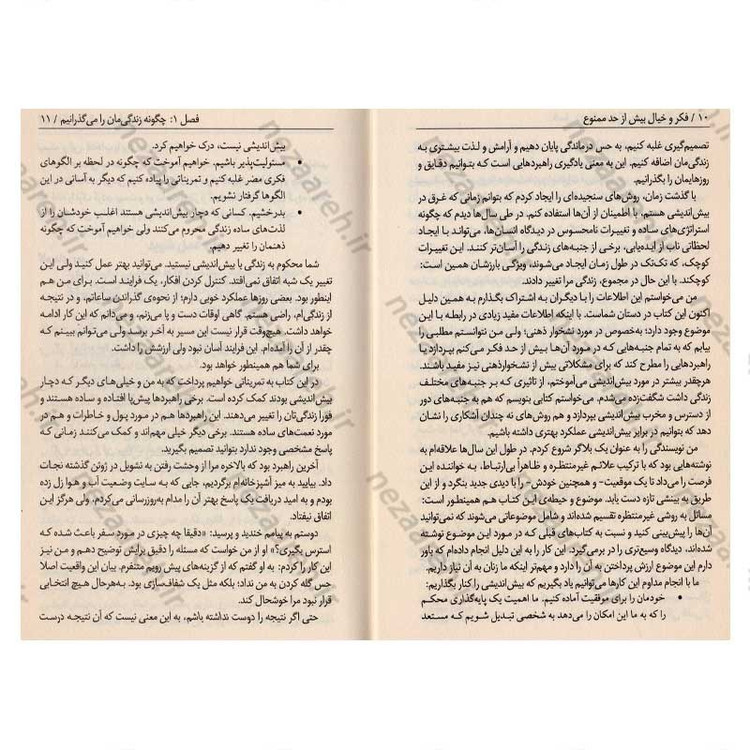 ۱۰ / فکر و خیال بیش از حد ممنوع
تصمیم‌گیری غلبه کنیم، به حس درماندگی پایان دهیم و آرامش و لذت بیشتری به
زندگی‌مان اضافه کنیم. این به معنی یادگیری راهبردهایی است که بتوانیم دقایق و
روزهایمان را بگذرانیم.
با گذشت زمان، روش‌های سنجیده‌ای را ایجاد کردم که بتوانم زمانی که غرق در
بیش‌اندیشی هستم، با اطمینان از آن‌ها استفاده کنم. در طی سال‌ها دیدم که چگونه
استراتژی‌های ساده و تغییرات نامحسوس در دیدگاه انسان‌ها، می‌تواند با ایجاد
لحظاتی ناب از ایده‌یابی، برخی از جنبه‌های زندگی را آسان‌تر کنند. این تغییرات
کوچک، که تک‌تک در طول زمان ایجاد می‌شوند، ویژگی بارزشان همین است:
کوچکند. با این حال در مجموع، زندگی مرا تغییر دادند.
من می‌خواستم این اطلاعات را با دیگران به اشتراک بگذارم به همین دلیل
اکنون این کتاب در دستان شماست. با اینکه اطلاعات مفید زیادی در رابطه با این
موضوع وجود دارد؛ به‌خصوص در مورد نشخوار ذهنی؛ ولی من نتوانستم مطلبی را
بیابم که به تمام جنبه‌هایی که در مورد آن‌ها بیش از حد فکر می‌کنم بپردازد یا
راهبردهایی را مطرح کند که برای مشکلاتی بیش از نشخوارذهنی نیز مفید باشند.
هرچقدر بیشتر در مورد بیش‌اندیشی می‌آموختم، از تأثیری که بر جنبه‌های مختلف
زندگی داشت شگفت‌زده می‌شدم. می‌خواستم کتابی بنویسم که هم به جنبه‌های دور
از دسترس و مخرب بیش‌اندیشی بپردازد و هم روش‌های نه چندان آشکاری را نشان
دهد که بتوانیم در برابر بیش‌اندیشی عملکرد بهتری داشته باشیم.
من نویسندگی را به عنوان یک بلاگر شروع کردم. در طول این سال‌ها علاقه‌ام به
نوشته‌هایی بود که با ترکیب علائم غیرمنتظره و ظاهراً بی‌ارتباط، به خواننده این
فرصت را می‌داد تا یک موقعیت- و همچنین خودش- را با دیدی جدید بنگرد و از این
طریق به بینشی تازه دست یابد. موضوع و حیطه‌ی این کتاب هم همینطور است:
مسائل به روشی غیرمنتظره تقسیم شده‌اند و شامل موضوعاتی می‌شوند که نمی‌توانید
آن‌ها را پیش‌بینی کنید و نسبت به کتاب‌های قبلی که در مورد این موضوع نوشته
شده‌اند، دیدگاه وسیع‌تری را در برمی‌گیرد. این کار را به این دلیل انجام داده‌ام که باور
دارم این موضوع ارزش پرداختن به آن را دارد و مهم‌تر اینکه ما زنان به آن نیاز داریم.
ما با انجام مداوم این کارها می‌توانیم یاد بگیریم که بیش‌اندیشی را کنار بگذاریم:
• خودمان را برای موفقیت آماده کنیم. ما اهمیت یک پایه‌گذاری محکم
را که به ما این امکان را می‌دهد به شخصی تبدیل شویم که مستعد
فصل ۱: چگونه زندگی‌مان را می‌گذرانیم / ۱۱
بیش‌اندیشی نیست، درک خواهیم کرد.
• مسئولیت‌پذیر باشیم. خواهیم آموخت که چگونه در لحظه بر الگوهای
فکری مضر غلبه کنیم و تمریناتی را پیاده کنیم که دیگر به آسانی در این
الگوها گرفتار نشویم.
• بدرخشیم. کسانی که دچار بیش‌اندیشی هستند اغلب خودشان را از
لذت‌های ساده زندگی محروم می‌کنند ولی خواهیم آموخت که چگونه
ذهنمان را تغییر دهیم.
شما محکوم به زندگی با بیش‌اندیشی نیستید. می‌توانید بهتر عمل کنید ولی این
تغییر یک شبه اتفاق نمی‌افتد. کنترل کردن افکار، یک فرایند است. برای من هم
اینطور بود. بعضی روزها عملکرد خوبی دارم؛ از نحوه‌ی گذراندن ساعاتم، و در نتیجه
از زندگی‌ام، راضی هستم. گاهی اوقات دست و پا می‌زنم، و می‌دانم که این کار ادامه
خواهد داشت. هیچ‌وقت قرار نیست این مسیر به آخر برسد ولی می‌توانم ببینم که
چقدر از آن را آمده‌ام. این فرایند آسان نبود ولی ارزشش را داشت.
برای شما هم همینطور خواهد بود.
در این کتاب به تمریناتی خواهیم پرداخت که به من و خیلی‌های دیگر که دچار
بیش‌اندیشی بودند کمک کرده است. برخی راهبردها پیش‌پا افتاده و ساده هستند و
فورا زندگی‌تان را تغییر می‌دهند. این راهبردها هم در مورد پول و خاطرات و هم در
مورد نعمت‌های ساده هستند. برخی دیگر خیلی مهم‌اند و کمک می‌کنند زمانی که
پاسخ مشخصی وجود ندارد بتوانید تصمیم بگیرید.
آخرین راهبرد بود که بالاخره مرا از وحشت رفتن به نشویل در ژوئن گذشته نجات
داد. بیایید به میز آشپزخانه‌ام برگردیم، جایی که به سایت وضعیت آب و هوا زل زده
بودم و به امید دریافت یک پاسخ بهتر آن را مدام به‌روزرسانی می‌کردم. ولی هرگز این
اتفاق نیفتاد.
دوستم به پیامم خندید و پرسید: «دقیقا چه چیزی در مورد سفر باعث شده که
استرس بگیری؟» او از من خواست که مسئله را دقیق برایش توضیح دهم و من نیز
این کار را کردم: به او گفتم که از گزینه‌های پیش رویم متنفرم. بیان این واقعیت اصلا
حس گله کردن به من نداد؛ بلکه مثل یک شفاف‌سازی بود. به‌هرحال هیچ انتخابی
قرار نبود مرا خوشحال کند.
حتی اگر نتیجه را دوست نداشته باشم، به این معنی نیست که آن نتیجه درست
nezaareh.ir